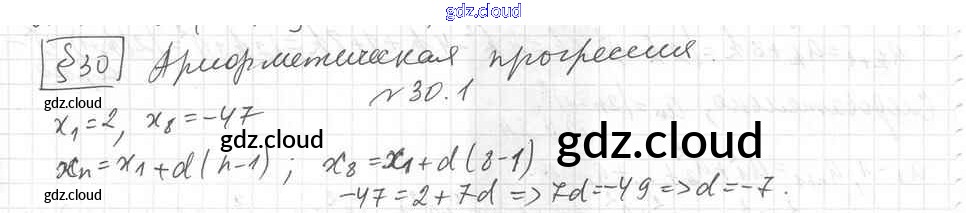 gdz.cloud
§30 Арифметическая прогрессия.
№ 30.1
gdz.cloud
x₁=2, x₈=-47
gdz.cloud
gdz.cloud
xₙ=x₁+d(n-1); x₈=x₁+d(8-1)
gdz.cloud
-47=2+7d => 7d=-49 => d=-7.